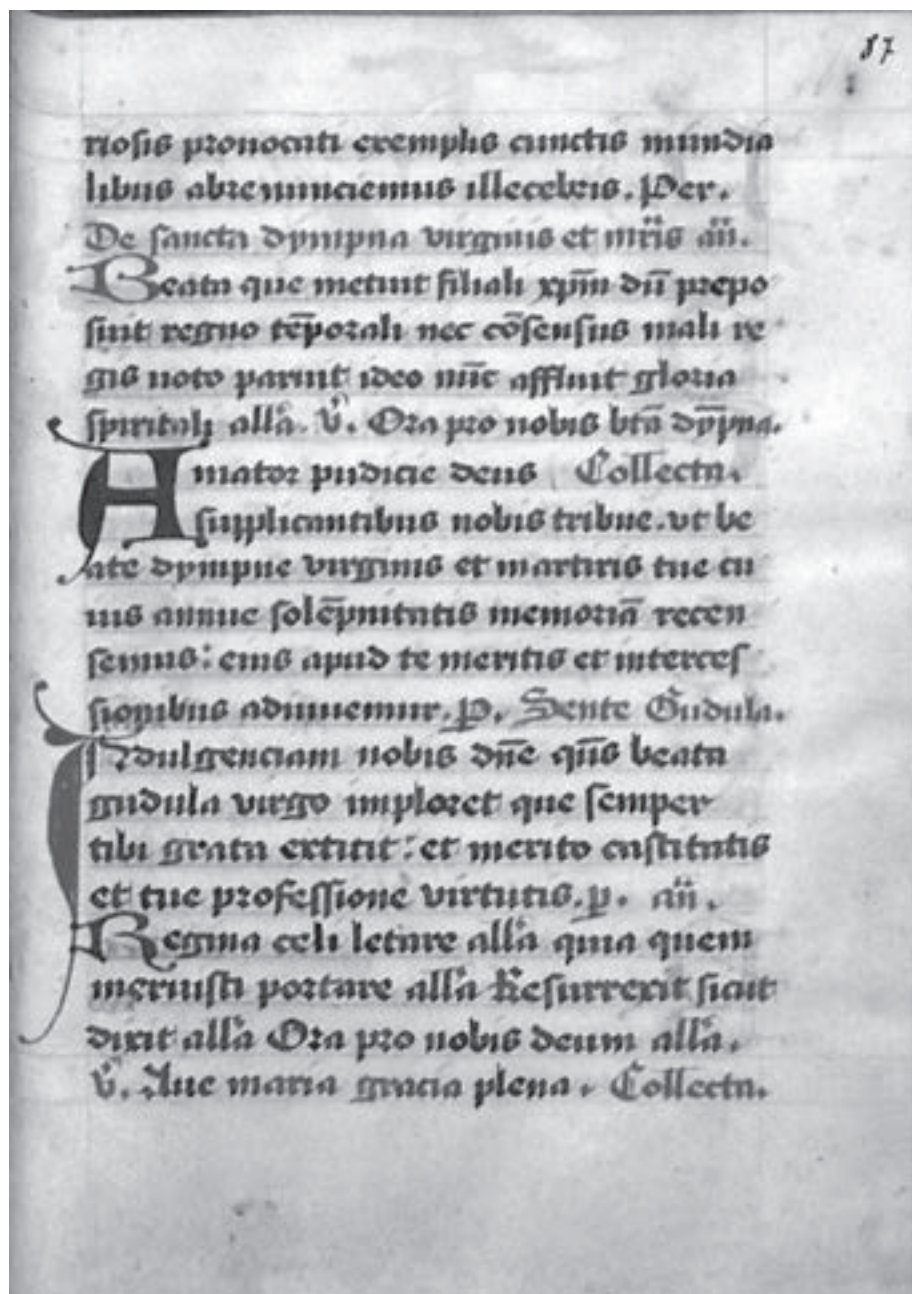 87
riosis prouocati exemplis cunctis mundia
libus abrenunciemus illecebris. Per.
De sancta dympna virginis et mr̄is an̄.
Beata que metuit filiali xp̄m dū prepo
suit regno tēporali nec cōsensus mali re
gis noto paruit ideo nūc affluit gloria
spiritali allā. V̄. Ora pro nobis btā dȳpna.
Amator pudicie deus Collecta.
supplicantibus nobis tribue. vt be
ate dympne virginis et martiris tue cu
ius annue solēpnitatis memoriā recen
semus: eius apud te meritis et interces
sionibus adiuuemur. p. Sente Gudula.
Indulgenciam nobis dn̄e qūs beata
gudula virgo imploret que semper
tibi grata extitit: et merito castitatis
et tue professione virtutis. p. an̄.
Regina celi letare allā quia quem
meruisti portare allā Resurrexit sicut
dixit allā Ora pro nobis deum allā.
V̄. Aue maria gracia plena. Collecta.